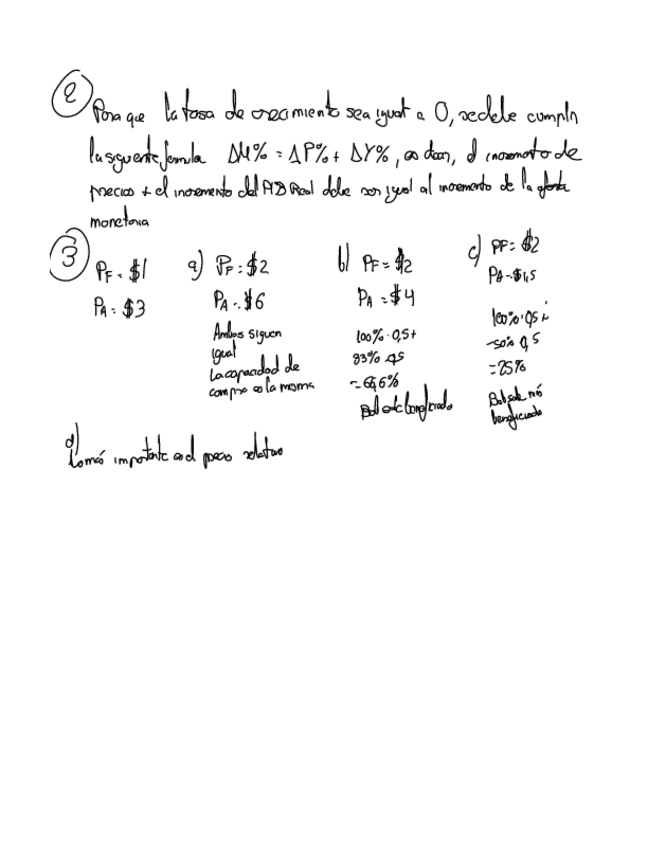 2
Para que la tasa de crecimiento sea igual a 0, se debe cumplir
la siguiente formula ΔM% = ΔP% + ΔY%, es decir, el incremento de
precios + el incremento del PIB Real debe ser igual al incremento de la oferta
monetaria
3
PF = $1
PA = $3
a) PF = $2
PA = $6
Ambos siguen
igual
La capacidad de
compra es la misma
b) PF = $2
PA = $4
100% · 0,5 +
33% · 0,5
= 66,6%
Bob es beneficiado
c) PF = $2
PA = $1,5
100% · 0,5 +
-50% 0,5
= 25%
Bob sale más
beneficiado
d)
Lo más importante es el precio relativo